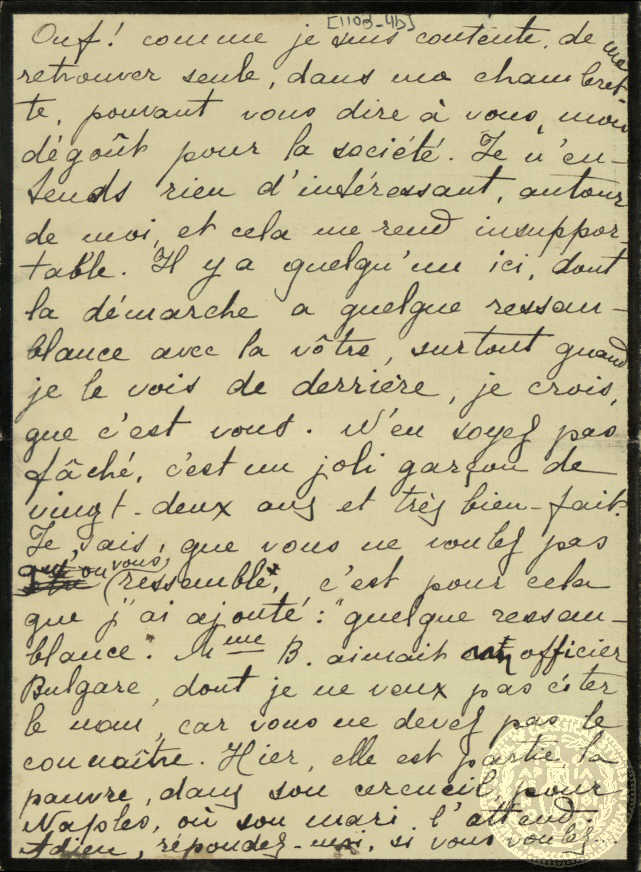 [1103-4b]
Ouf! comme je suis contente, de me
retrouver seule, dans ma chambret-
te, pouvant vous dire à vous, mon
dégoût pour la société. Je n'en-
tends rien d'intéressant, autour
de moi, et cela me rend insuppor-
table. Il y a quelqu'un ici, dont
la démarche a quelque ressem-
blance avec la vôtre, surtout quand
je le vois de derrière, je crois,
que c'est vous. N'en soyez pas
fâché, c'est un joli garçon de
vingt-deux ans et très bien-fait.
Je sais, que vous ne voulez pas
qu'on vous,
(ressemble, c'est pour cela
que j'ai ajouté: "quelque ressem-
blance". Mme B. aimait officier
Bulgare, dont je ne veux pas citer
le nom, car vous ne devez pas le
connaître. Hier, elle est partie, la
pauvre, dans son cercueil, pour
Naples, où son mari l'attend.
Adieu, répondez-moi, si vous voulez...